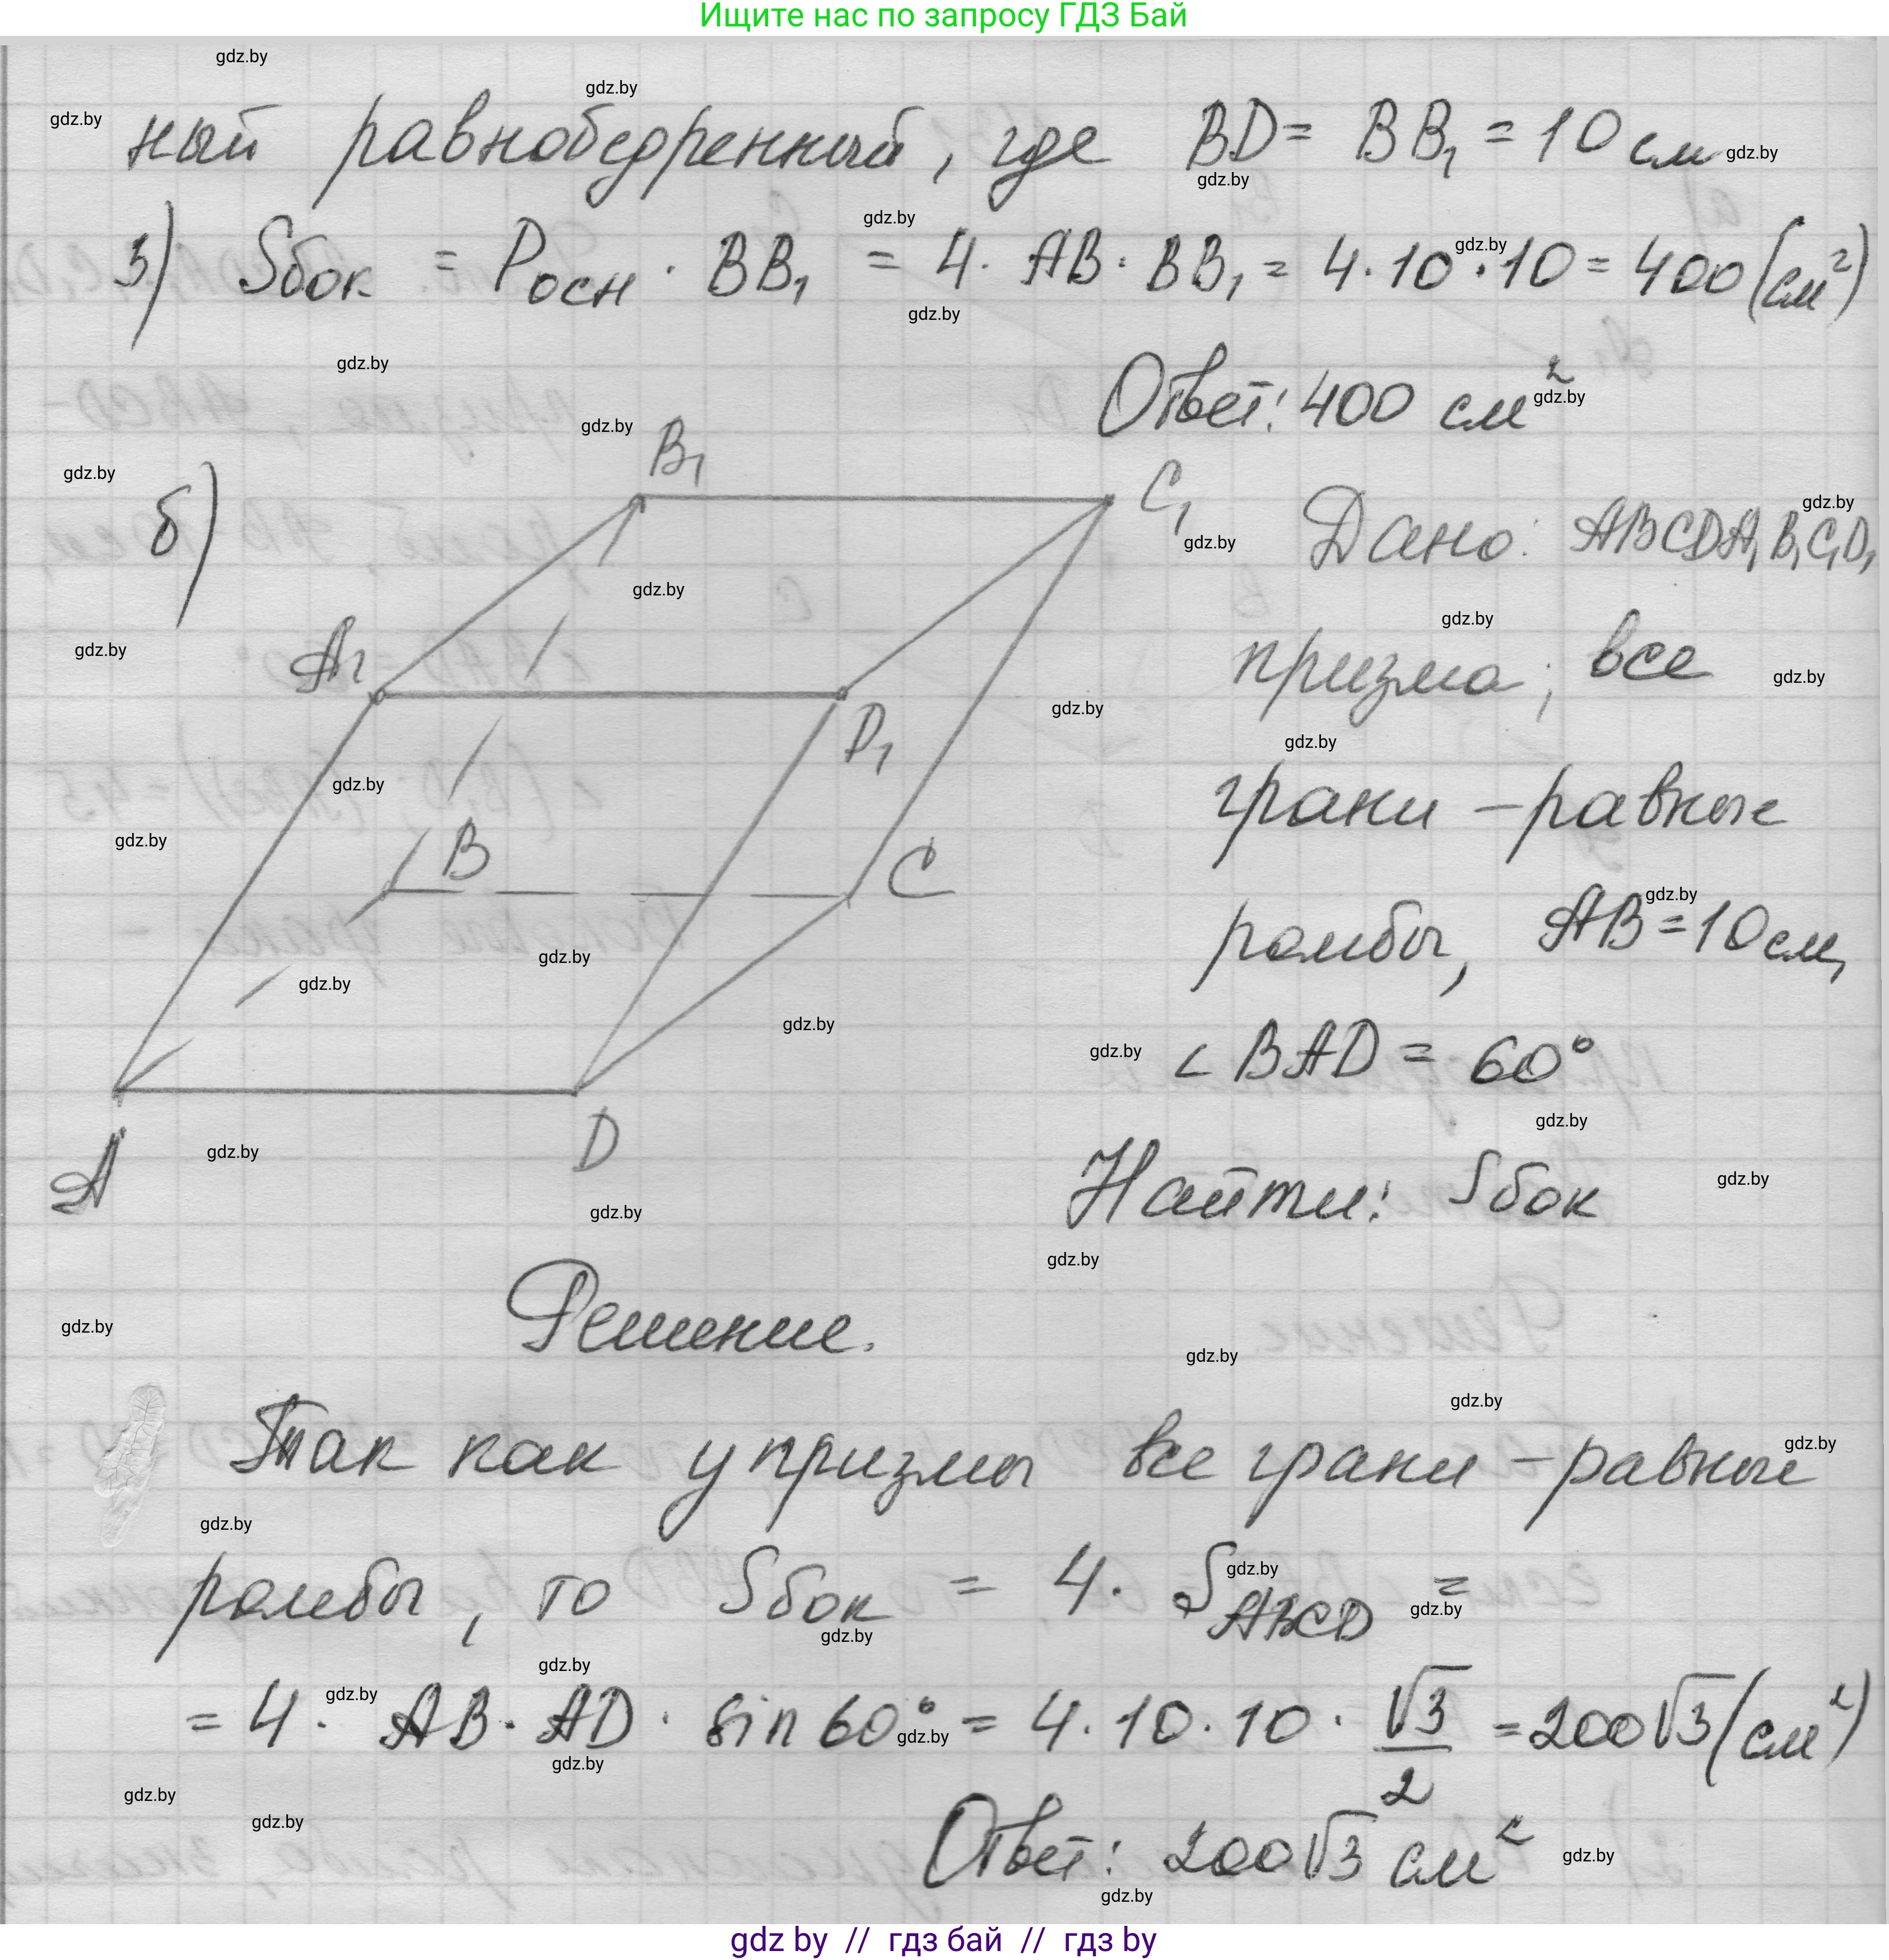 Ищите нас по запросу ГДЗ Бай
ный равнобедренный, где BD = BB₁ = 10 см
3) Sбок = Pосн · BB₁ = 4 · AB · BB₁ = 4 · 10 · 10 = 400 (см²)
Ответ: 400 см²
б)
B₁
C₁
A₁
D₁
B
C
A
D
Дано: ABCDA₁B₁C₁D₁
призма; все
грани – равные
ромбы, AB = 10 см,
∠BAD = 60°
Найти: Sбок
Решение.
Так как у призмы все грани – равные
ромбы, то Sбок = 4 · S_ABCD =
= 4 · AB · AD · sin 60° = 4 · 10 · 10 · √3/2 = 200√3 (см²)
Ответ: 200√3 см²
gdz by // гдз бай // гдз by